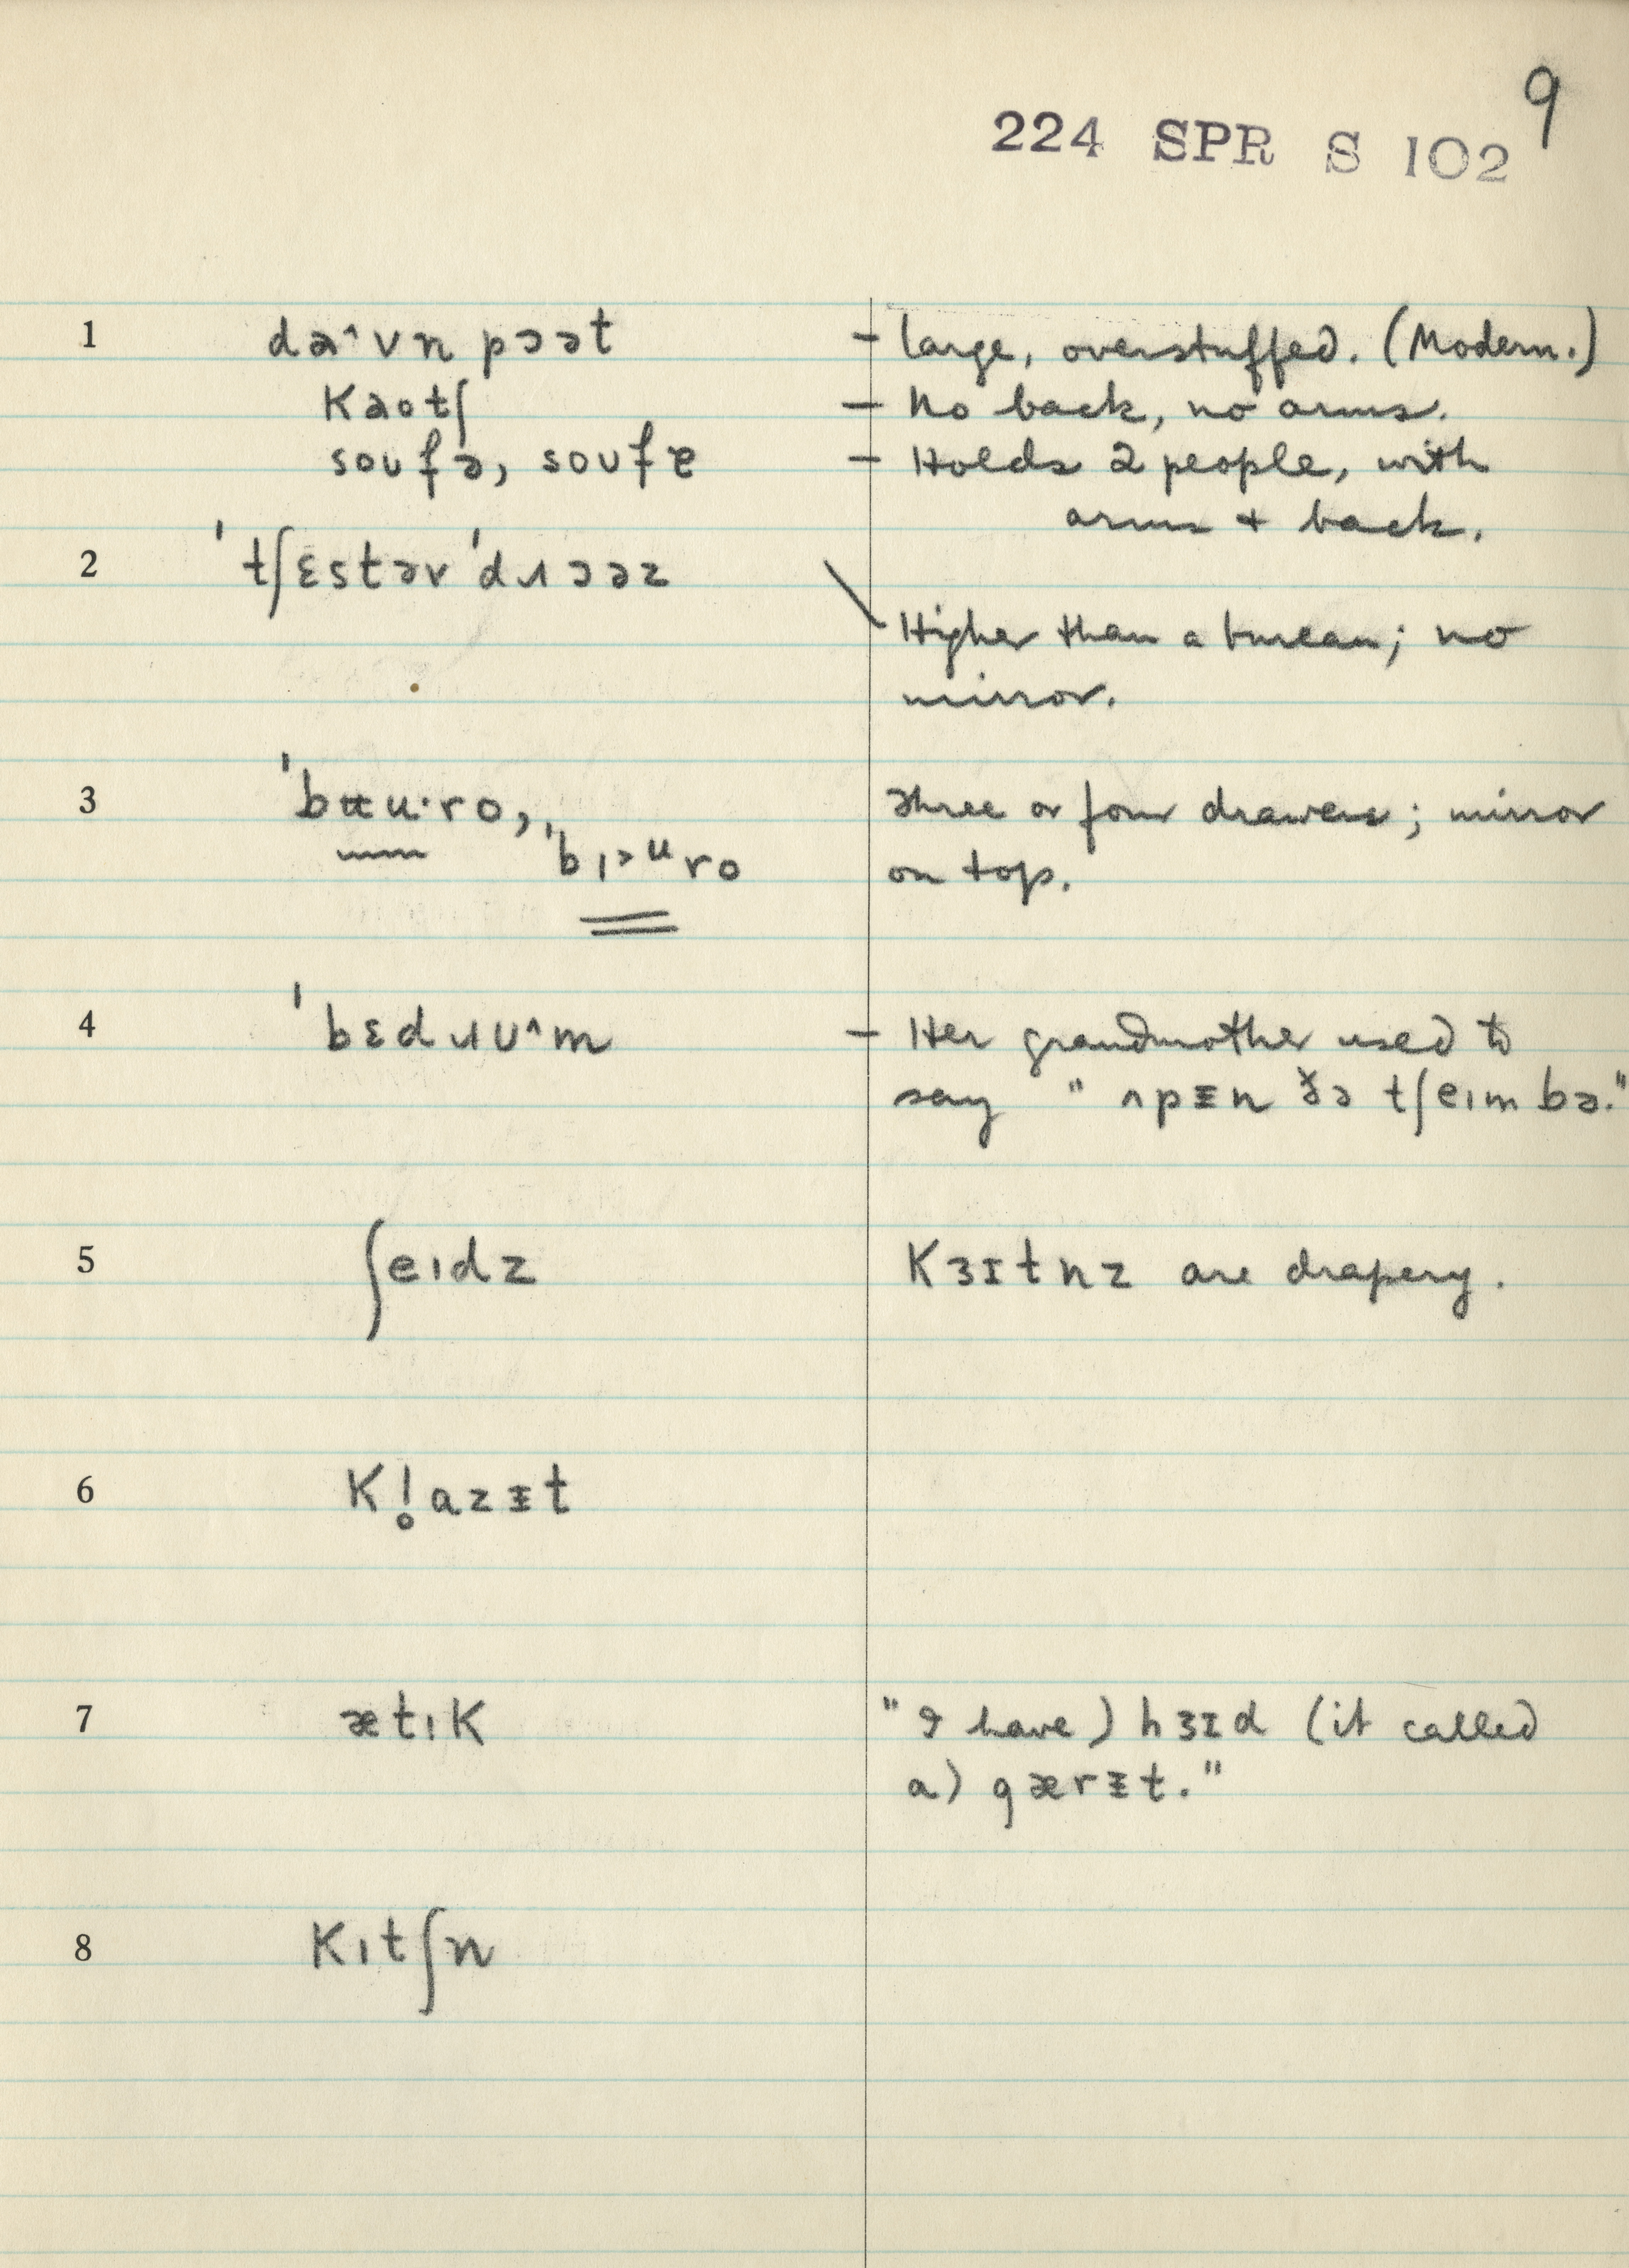 9
224 SPR S 102
1 da^vn pɔət – large, overstuffed. (Modern.)
kaotʃ – No back, no arms.
soufə, soufɐ – Holds 2 people, with
arms + back.
2 'tʃɛstəv'dɹɔəz Higher than a bureau; no
mirror.
3 'bʉu·ro, Three or four drawers; mirror
'bɪ>ᵘro on top.
4 'bɛdɹᴜ^m – Her grandmother used to
say " ʌpᵻn ðə tʃeɪmbə."
5 ʃeɪdz Kɜɪtnz are drapery.
6 kl̥azᵻt
7 ætɪk "I have) hɜɪd (it called
a) gærᵻt."
8 kɪtʃn